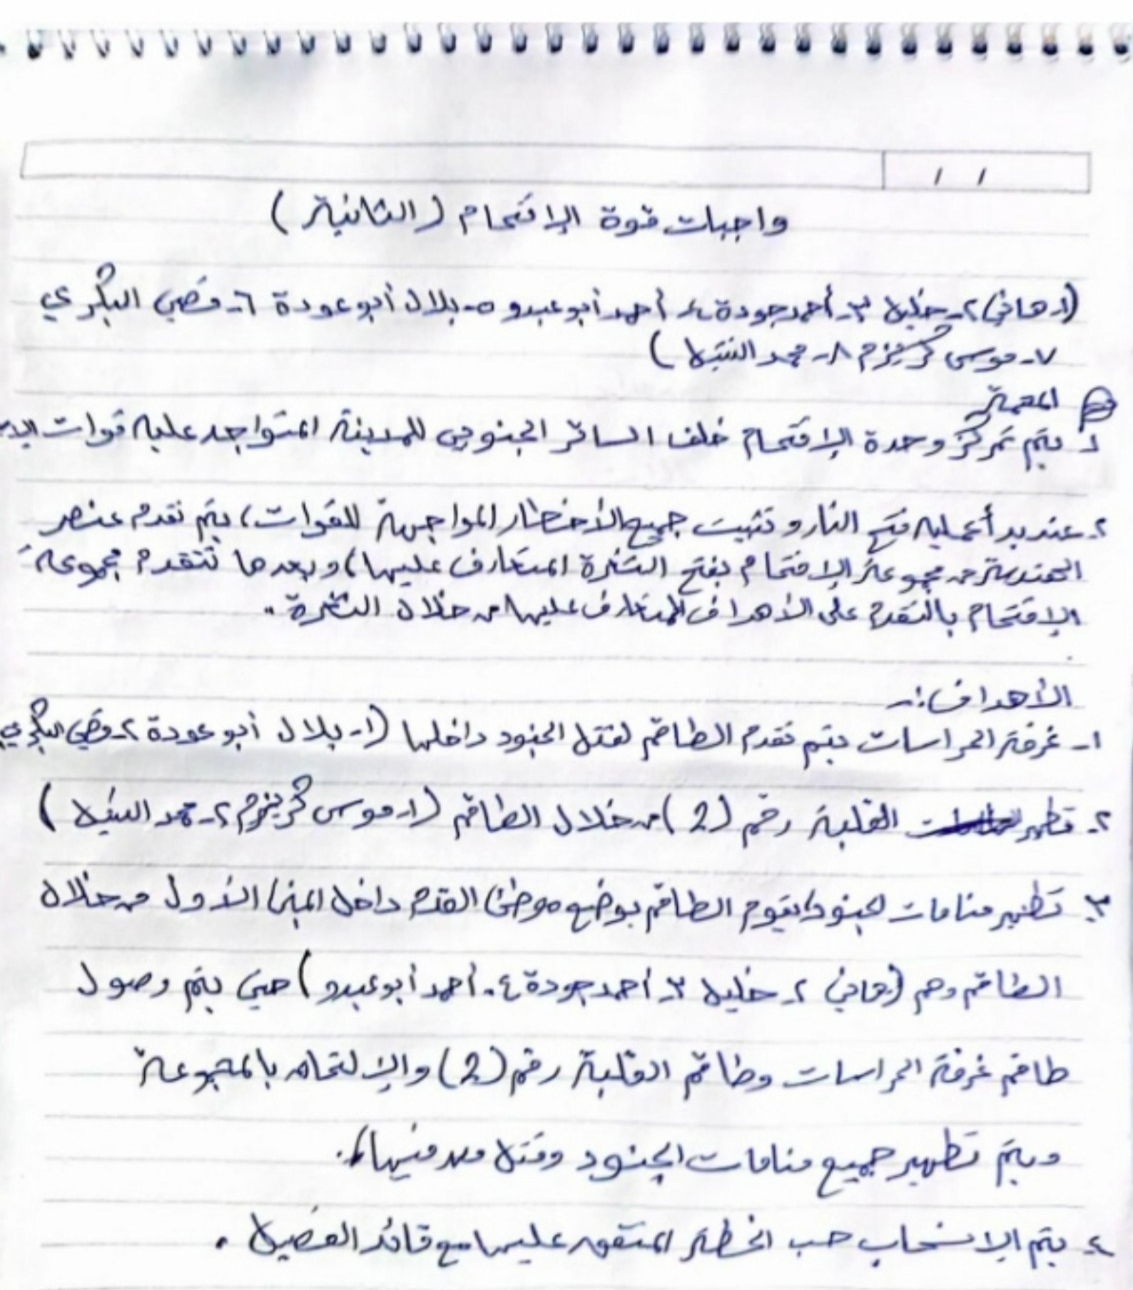 واجبات قوة الإقتحام (الثانية)
(١- هاني ٢- خليل ٣- أحمد جودة ٤- أحمد أبو عبدو ٥- بلال أبو عودة ٦- قصي البكري
٧- موسى كريزم ٨- محمد)
المهمة
١- يتم تمركز وحدة الإقتحام خلف الساتر الجنوبي للمدينة المتواجد عليه قوات
٢- عند بدأ عملية فتح النار و تثبيت جميع الأخطار المواجهة للقوات، يتم تقدم عنصر
الهندسة من مجموعة الإقتحام بفتح الثغرة المتعارف عليها، وبعدها تتقدم مجموعة
الإقتحام بالتقدم على الأهداف المتعارف عليها من خلال الثغرة.
الأهداف :-
١- غرفة الحراسات يتم تقدم الطاقم لقتل الجنود داخلها (١- بلال أبو عودة ٢- قصي البكري
٢- تطهير القلبة رقم (2) من خلال الطاقم (١- موسى كريزم ٢- محمد)
٣- تطهير منامات الجنود يقوم الطاقم بوضع موطئ القدم داخل المبنى الأول من خلال
الطاقم وهم (هاني ٢- خليل ٣- أحمد جودة ٤- أحمد أبو عبدو) حتى يتم وصول
طاقم غرفة الحراسات وطاقم القلبة رقم (2) والإلتحام بالمجموعة
ويتم تطهير جميع منامات الجنود وقتل من فيها.
٤- يتم الإنسحاب حسب الخطة المتفق عليها مع قائد الفصيل.